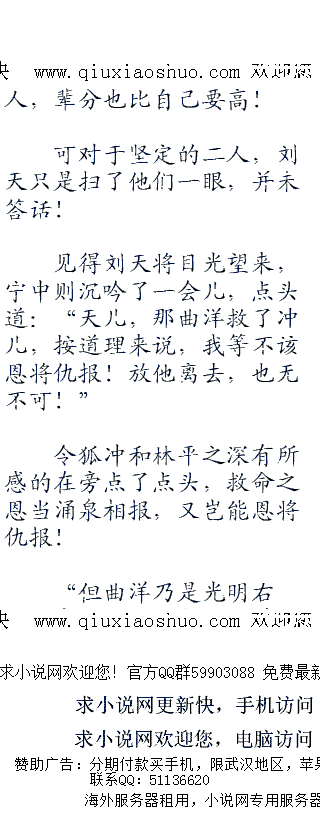 快 www.qiuxiaoshuo.com 欢迎您
人，辈分也比自己要高！
可对于坚定的二人，刘
天只是扫了他们一眼，并未
答话！
见得刘天将目光望来，
宁中则沉吟了一会儿，点头
道：“天儿，那曲洋救了冲
儿，按道理来说，我等不该
恩将仇报！放他离去，也无
不可！”
令狐冲和林平之深有所
感的在旁点了点头，救命之
恩当涌泉相报，又岂能恩将
仇报！
“但曲洋乃是光明右
快 www.qiuxiaoshuo.com 欢迎您
求小说网欢迎您！官方QQ群59903088 免费最新
求小说网更新快，手机访问
求小说网欢迎您，电脑访问
赞助广告：分期付款买手机，限武汉地区，苹果
联系QQ：51136620
海外服务器租用，小说网专用服务器